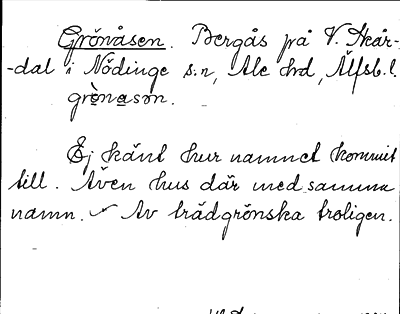 Grönåsen. Bergås på V. Skår-
-dal i Nödinge s:n, Ale hd, Älfsb. l.
grò̀nasòn.
Ej känt hur namnet kommit
till. Även hus där med samma
namn. Av trädgrönska troligen.